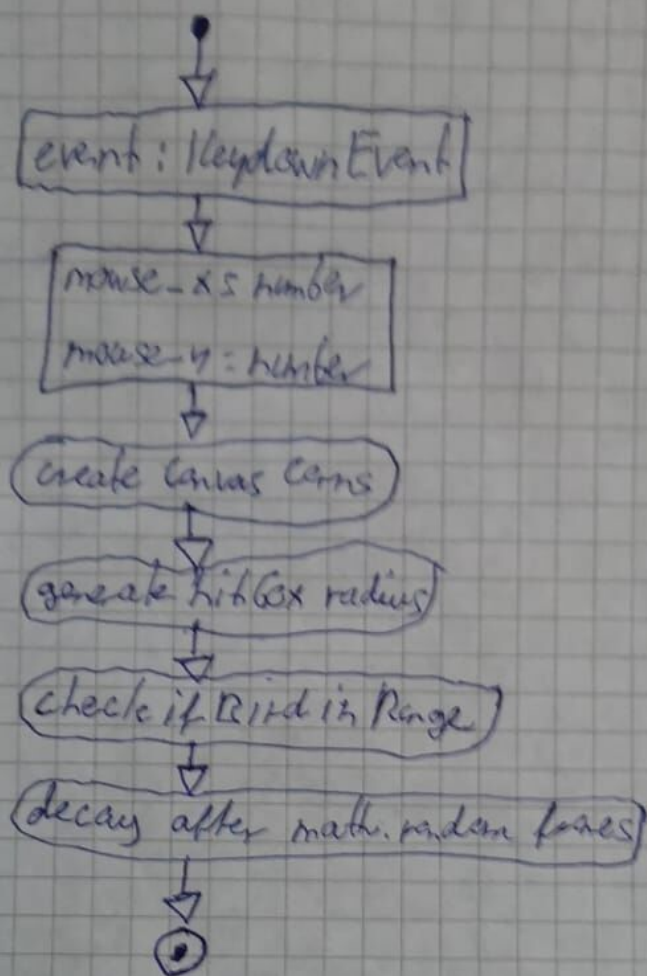 event: KeydownEvent
mouse_x: number
mouse_y: number
create Canvas Corns
generate hitbox radius
check if Bird in Range
decay after math.random frames